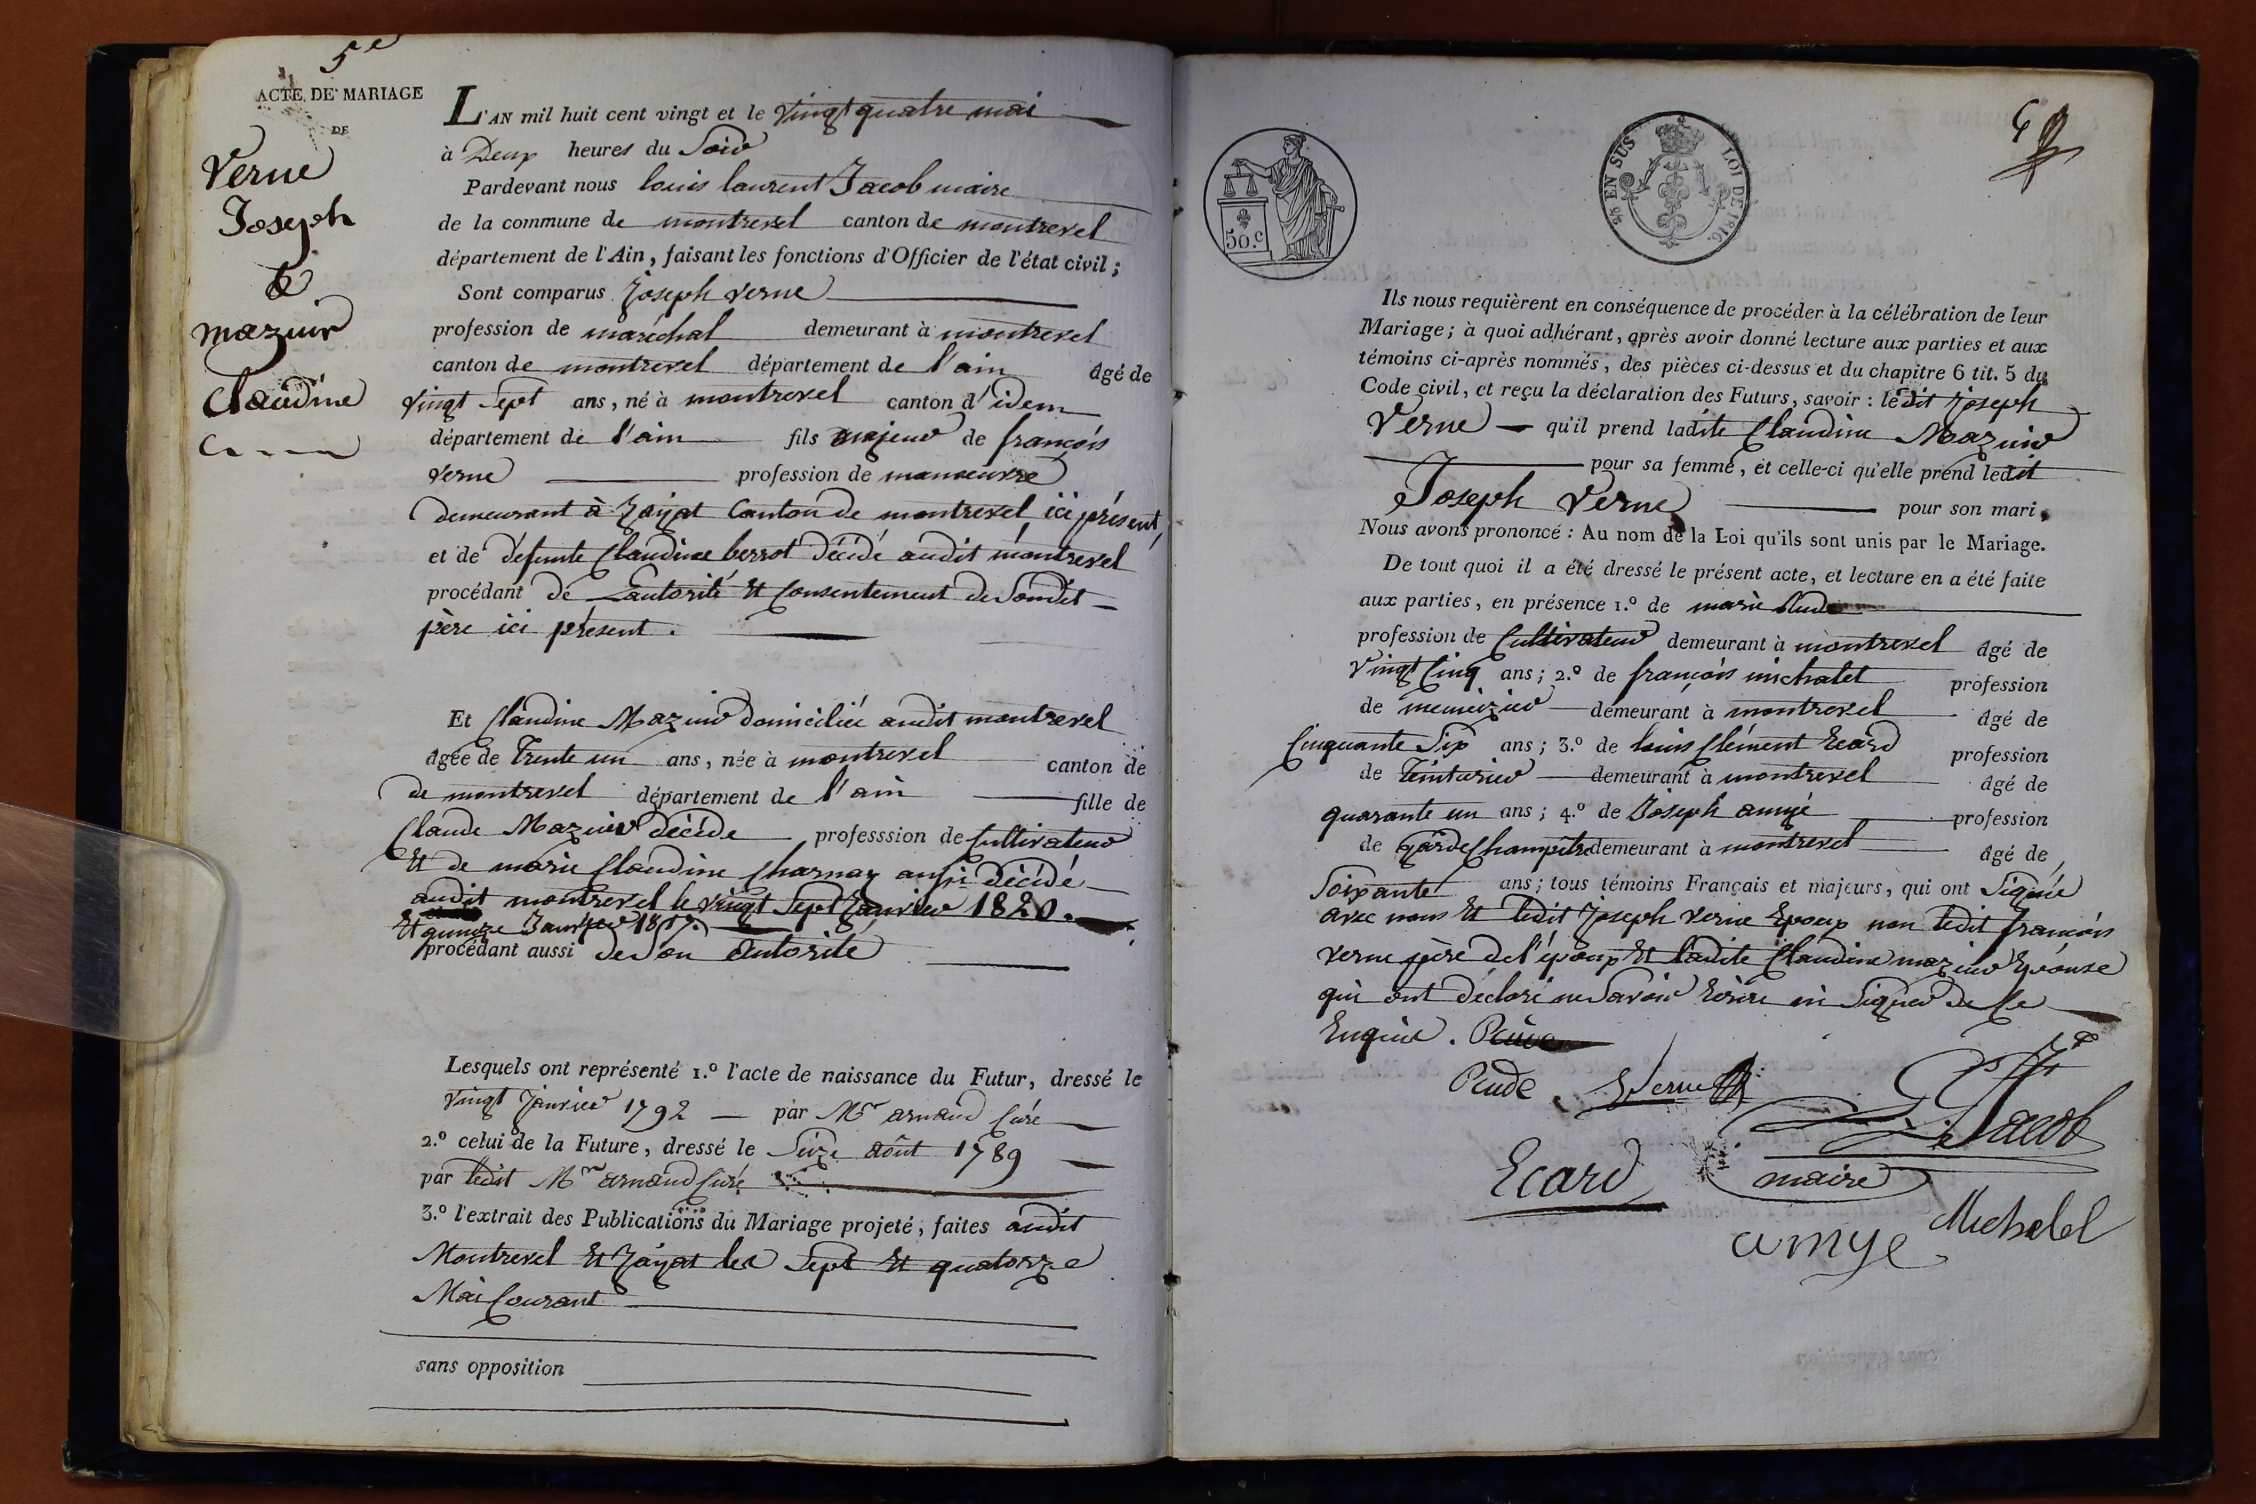 5e
ACTE DE MARIAGE
DE
Verne
Joseph
&
mazuir
Claudine
L'AN mil huit cent vingt et le vingt quatre mai
à Deux heures du Soir
Pardevant nous louis laurent Jacob maire
de la commune de montrevel canton de montrevel
département de l'Ain, faisant les fonctions d'Officier de l'état civil;
Sont comparus Joseph verne
profession de maréchal demeurant à montrevel
canton de montrevel département de l'ain âgé de
vingt Sept ans, né à montrevel canton d'idem
département de l'ain fils majeur de françois
verne profession de manoeuvre
demeurant à Jayat Canton de montrevel ici présent,
et de défunte Claudine berrot décédé audit montrevel
procédant de Lautorité Et Consentement de Sondit
père ici présent.
Et Claudine Mazuir domiciliée audit montrevel
âgée de Trente un ans, née à montrevel canton de
de montrevel département de l'ain fille de
Claude Mazuir décédé professsion de Cultivateur
Et de marie Claudine Charnay aussi décédé
audit montrevel le vingt Sept Janvier 1820.
Et quinze Janvier 1817.
procédant aussi de Son autorité
Lesquels ont représenté 1.º l'acte de naissance du Futur, dressé le
vingt Janvier 1792 par Mr arnaud Curé
2.º celui de la Future, dressé le Seize août 1789
par ledit Mr arnaud Curé
3.º l'extrait des Publications du Mariage projeté, faites audit
Montrevel Et Jayat les Sept Et quatorze
Mai Courant
sans opposition
50.c
EN SUS LOI DE 1816.
Ils nous requièrent en conséquence de procéder à la célébration de leur
Mariage; à quoi adhérant, après avoir donné lecture aux parties et aux
témoins ci-après nommés, des pièces ci-dessus et du chapitre 6 tit. 5 du
Code civil, et reçu la déclaration des Futurs, savoir: ledit Joseph
Verne qu'il prend ladite Claudine Mazuir
pour sa femme, et celle-ci qu'elle prend ledit
Joseph Verne pour son mari,
Nous avons prononcé: Au nom de la Loi qu'ils sont unis par le Mariage.
De tout quoi il a été dressé le présent acte, et lecture en a été faite
aux parties, en présence 1.º de marie
profession de Cultivateur demeurant à montrevel âgé de
vingt Cinq ans; 2.º de françois michalet profession
de menuizier demeurant à montrevel âgé de
Cinquante Six ans; 3.º de louis Clément Ecard profession
de Teinturier demeurant à montrevel âgé de
quarante un ans; 4.º de Joseph amyé profession
de garde Champêtre demeurant à montrevel âgé de
Soixante ans; tous témoins Français et majeurs, qui ont Signé
avec nous Et ledit Joseph verne Epoux non ledit françois
verne père de l'époux Et ladite Claudine mazuir Epouse
qui ont déclaré ne Savoir Ecrire ni Signer de Ce
Enquis.
Verne
Jacob
maire
Ecard
amye
Michalet